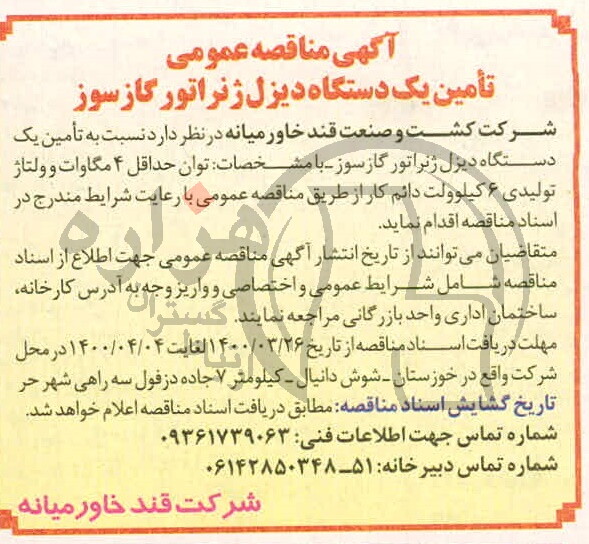 آگهی مناقصه عمومی
تأمین یک دستگاه دیزل ژنراتور گازسوز
شرکت کشت و صنعت قند خاورمیانه در نظر دارد نسبت به تأمین یک
دستگاه دیزل ژنراتور گازسوز ـ با مشخصات: توان حداقل ۴ مگاوات و ولتاژ
تولیدی ۶ کیلوولت دائم کار از طریق مناقصه عمومی با رعایت شرایط مندرج در
اسناد مناقصه اقدام نماید.
متقاضیان می‌توانند از تاریخ انتشار آگهی مناقصه عمومی جهت اطلاع از اسناد
مناقصه شامل شرایط عمومی و اختصاصی و واریز وجه به آدرس کارخانه،
ساختمان اداری واحد بازرگانی مراجعه نمایند.
مهلت دریافت اسناد مناقصه از تاریخ ۱۴۰۰/۰۳/۲۶ لغایت ۱۴۰۰/۰۴/۰۴ در محل
شرکت واقع در خوزستان ـ شوش دانیال ـ کیلومتر ۷ جاده دزفول سه راهی شهر حر
تاریخ گشایش اسناد مناقصه: مطابق دریافت اسناد مناقصه اعلام خواهد شد.
شماره تماس جهت اطلاعات فنی: ۰۹۳۶۱۷۳۹۰۶۳
شماره تماس دبیرخانه: ۵۱ـ۰۶۱۴۲۸۵۰۳۴۸
شرکت قند خاورمیانه
هزاره
گستران